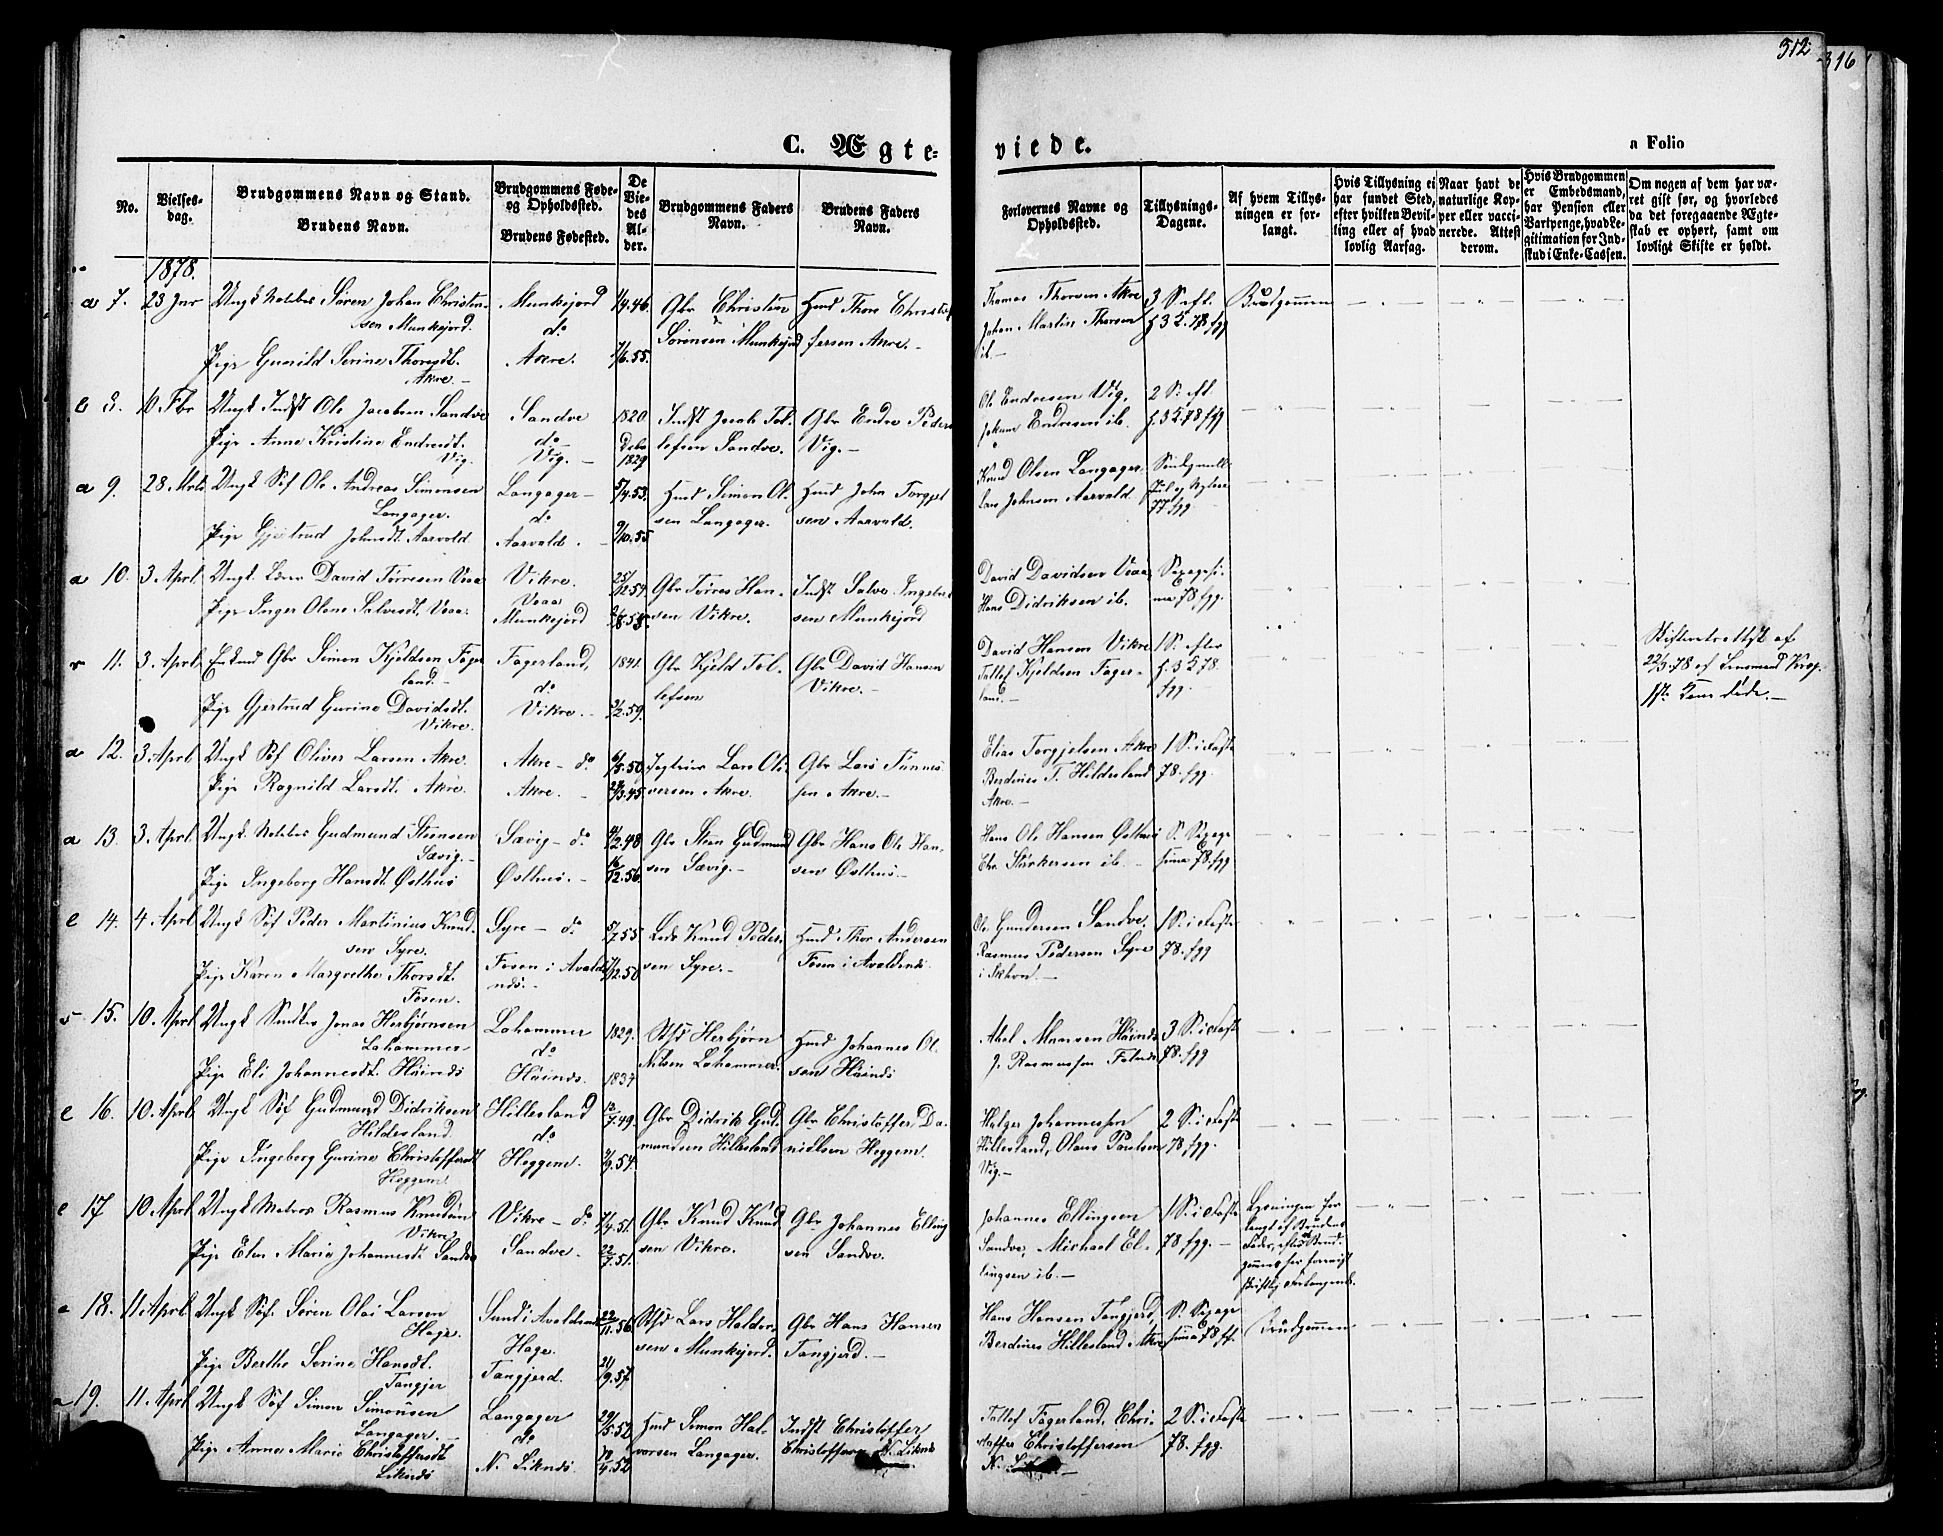 312
316
C. Ægte-
viede.
a Folio
No.
Vielses-
dag.
Brudgommens Navn og Stand.
Brudens Navn.
Brudgommens Føde-
og Opholdssted.
Brudens Fødested.
De
Vie-
des
Al-
der.
Brudgommens Faders
Navn.
Brudens Faders
Navn.
Forlovernes Navne og
Opholdssted.
Tillysnings-
Dagene.
Af hvem Tillys-
ningen er for-
langt.
Hvis Tillysning ei
har fundet Sted,
efter hvilken Bevil-
ling eller af hvad
lovlig Aarsag.
Naar havt de
naturlige Kop-
per eller vacci-
nerede. Attest
derom.
Hvis Brudgommen
er Embedsmand,
har Pension eller
Vartpenge, hvad Le-
gitimation for Ind-
skud i Enke-Cassen.
Om nogen af dem har væ-
ret gift før, og hvorledes
da det foregaaende Ægte-
skab er ophørt, samt om
lovligt Skifte er holdt.
1878.
a 7. 23 Jnr Ungk Søren Johan Christen-
sen Munkejord.
Pige Gunild Serine Thoresdt.
Akre.
Munkejord
do
Akre.
1/4.46.
1/6.55.
Gbr Christen
Sörensen Munkejord
Hmd Thore Christof
fersen Akre.
Thomas Thorsen Akre
Johan Martin Thorsen
ib.
3 S. eft.
f. 3 K. 78 fgg
Brudgommen
e 8. 10 Fbr Ungk Indst Ole Jacobsen Sandve
Pige Anne Kristine Endresdt.
Vig.
Sandve
do
Vig.
1820
Debr
1829
Indst Jacob Tol-
lefsen Sandve.
Gbr Endre Peders
Vig.
Ole Endresen Vig,
Endresen ib.
2 S. eft
f. 3 K 78 fgg
a 9. 28 Mrts Ungk Söf Ole Andreas Simonsen
Langager.
Pige Gjertrud Johnsdt. Aarvold
Langager
do
Aarvold.
5/4.53.
9/10.55
Hmd Simon Ol-
sen Langager.
Hmd John Torgjel
sen Aarvold.
Knud Olsen Langager
Lars Johnsen Aarvold.
77 fgg
a 10. 3 Aprl. Ungk. Lærer David Tørresen Veaa
Pige Inger Olene Salvesdt. Veaa
Vikre.
Veaa
Munkejord
25/12.54.
2/8.58.
Gbr Tørres Han-
sen Vikre.
Indst Salve Ingebret
sen Munkejord
David Davidsen Veaa
Hans Didriksen ib.
Sexagesi-
ma 78 fgg.
11. 3. Aprl. Enkmd Gbr Simon Kjeldsen Fager
land.
Pige Gjertrud Gurine Davidsdt.
Vikre.
Fagerland,
do
Vikre.
1841.
2/2.59.
Gbr Kjeld Tol-
lefsen
Gbr David Hansen
Vikre.
David Hansen Vikre
Tollef Kjeldsen Fager-
land.
1 S. efter
f. 3 K 78.
fgg.
Skifteretsattest af
22/3.78 af Lensmand
Kone døde.
a 12. 3. Aprl Ungk Söf Oliver Larsen Akre.
Pige Ragnild Larsdt. Akre.
Akre do
Akre.
6/5.50.
28/3.45
Lars Oli-
versen Akre.
Gbr Lars Tønnes-
sen Akre.
Elias Torgjelsen Akre
Berdines T. Hildesland
Akre.
1 S. i Faste
78. fgg.
a 13. 3. Aprl Ungk Gudmund Steensen
Sævig.
Pige Ingeborg Hansdt Østhus
Sævig do
Østhus.
4/2.48
16/2.56.
Gbr Sten Gudmund
sen Sævig.
Gbr Hans Ols Han-
sen Østhus.
Hans Ols Hansen Østhus
Chr. Stürkersen ib.
S. Sexage
sima 78. fgg
e 14. 4 Aprl. Ungk Söf Peder Martinius Knud-
sen Syre.
Pige Karen Margrethe Thorsdt.
Fosen.
Syre do
Fosen i Avalds
næs.
5/7.55
2/12.50
Knud Peder
sen Syre.
Hmd Thor Andersen
Fosen i Avaldsnæs.
Ole Gundersen Sandve.
Rasmus Pedersen Syre
i Skhvn.
1 S. i Faste
78. fgg.
s 15. 10. Aprl Ungk Jonas Herbjørnsen
Lahammer
Pige Eli Johannesdt. Høinæs
Lahammer
do
Høinæs.
1829.
1837
Hsfd Herbjörn
Nilsen Lahammer.
Hmd Johannes Ol
sen Høinæs
Abel Monsen Høinæs
J. Rasmussen Falnæs
3 S. i Faste
78. fgg
e 16. 10. Aprl. Ungk Söf Gudmund Didriksen
Hildesland.
Pige Ingeborg Gurine Christoffersdt
Heggem
Hillesland
do
Heggem.
12/7.49.
2/9.54.
Gbr Didrik Gud-
mundsen Hillesland
Gbr Christoffer Da-
nielsen Heggem.
Holger Johannessen
Hillesland, Olaus Paulsen
Vig.
2 S. i Faste
78 fgg.
e 17 10. Aprl Ungk Matros Rasmus Knudsen
Vikre
Pige Elen Marie Johannesdt. Sandve
Vikre do
Sandve.
7/4.51.
22/7.51.
Gbr Knud Knud
sen Vikre.
Gbr Johannes Elling
sen Sandve.
Johannes Ellingsen
Sandve, Michael El-
lingsen ib.
1 S. i Faste
78 fgg.
Lysningen for
langt af Brudens
Fader, efter Brud-
gommens
skriftlig Forlangende.
18. 11. Aprl. Ungk Söf. Sören Olai Larsen
Hage.
Pige Berthe Serine Hansdt.
Tangjer
Sund i Avaldsnæs
Hage.
Tangjerd.
22/11.56
21/9.57.
Hsfd Lars Haldor-
sen Munkejord.
Gbr Hans Hansen
Tangjerd.
Hans Hansen Tangjerd,
Berdines Hillesland Akre
S. Sexage
sima 78 ff.
Brudgommen
a 19. 11. Aprl Ungk Söf Simon Simonsen
Langager.
Pige Anne Marie Christoffersdt
Liknæs
Langager
do
N. Liknæs.
29/5.52
12/4.52
Hmd Simon Hal-
vorsen Langager.
Indst Christoffer
Christoffersen N. Liknæs
Tollef Fagerland, Chri-
stoffer Christoffersen
N.
2 S. i Faste
78. fgg.